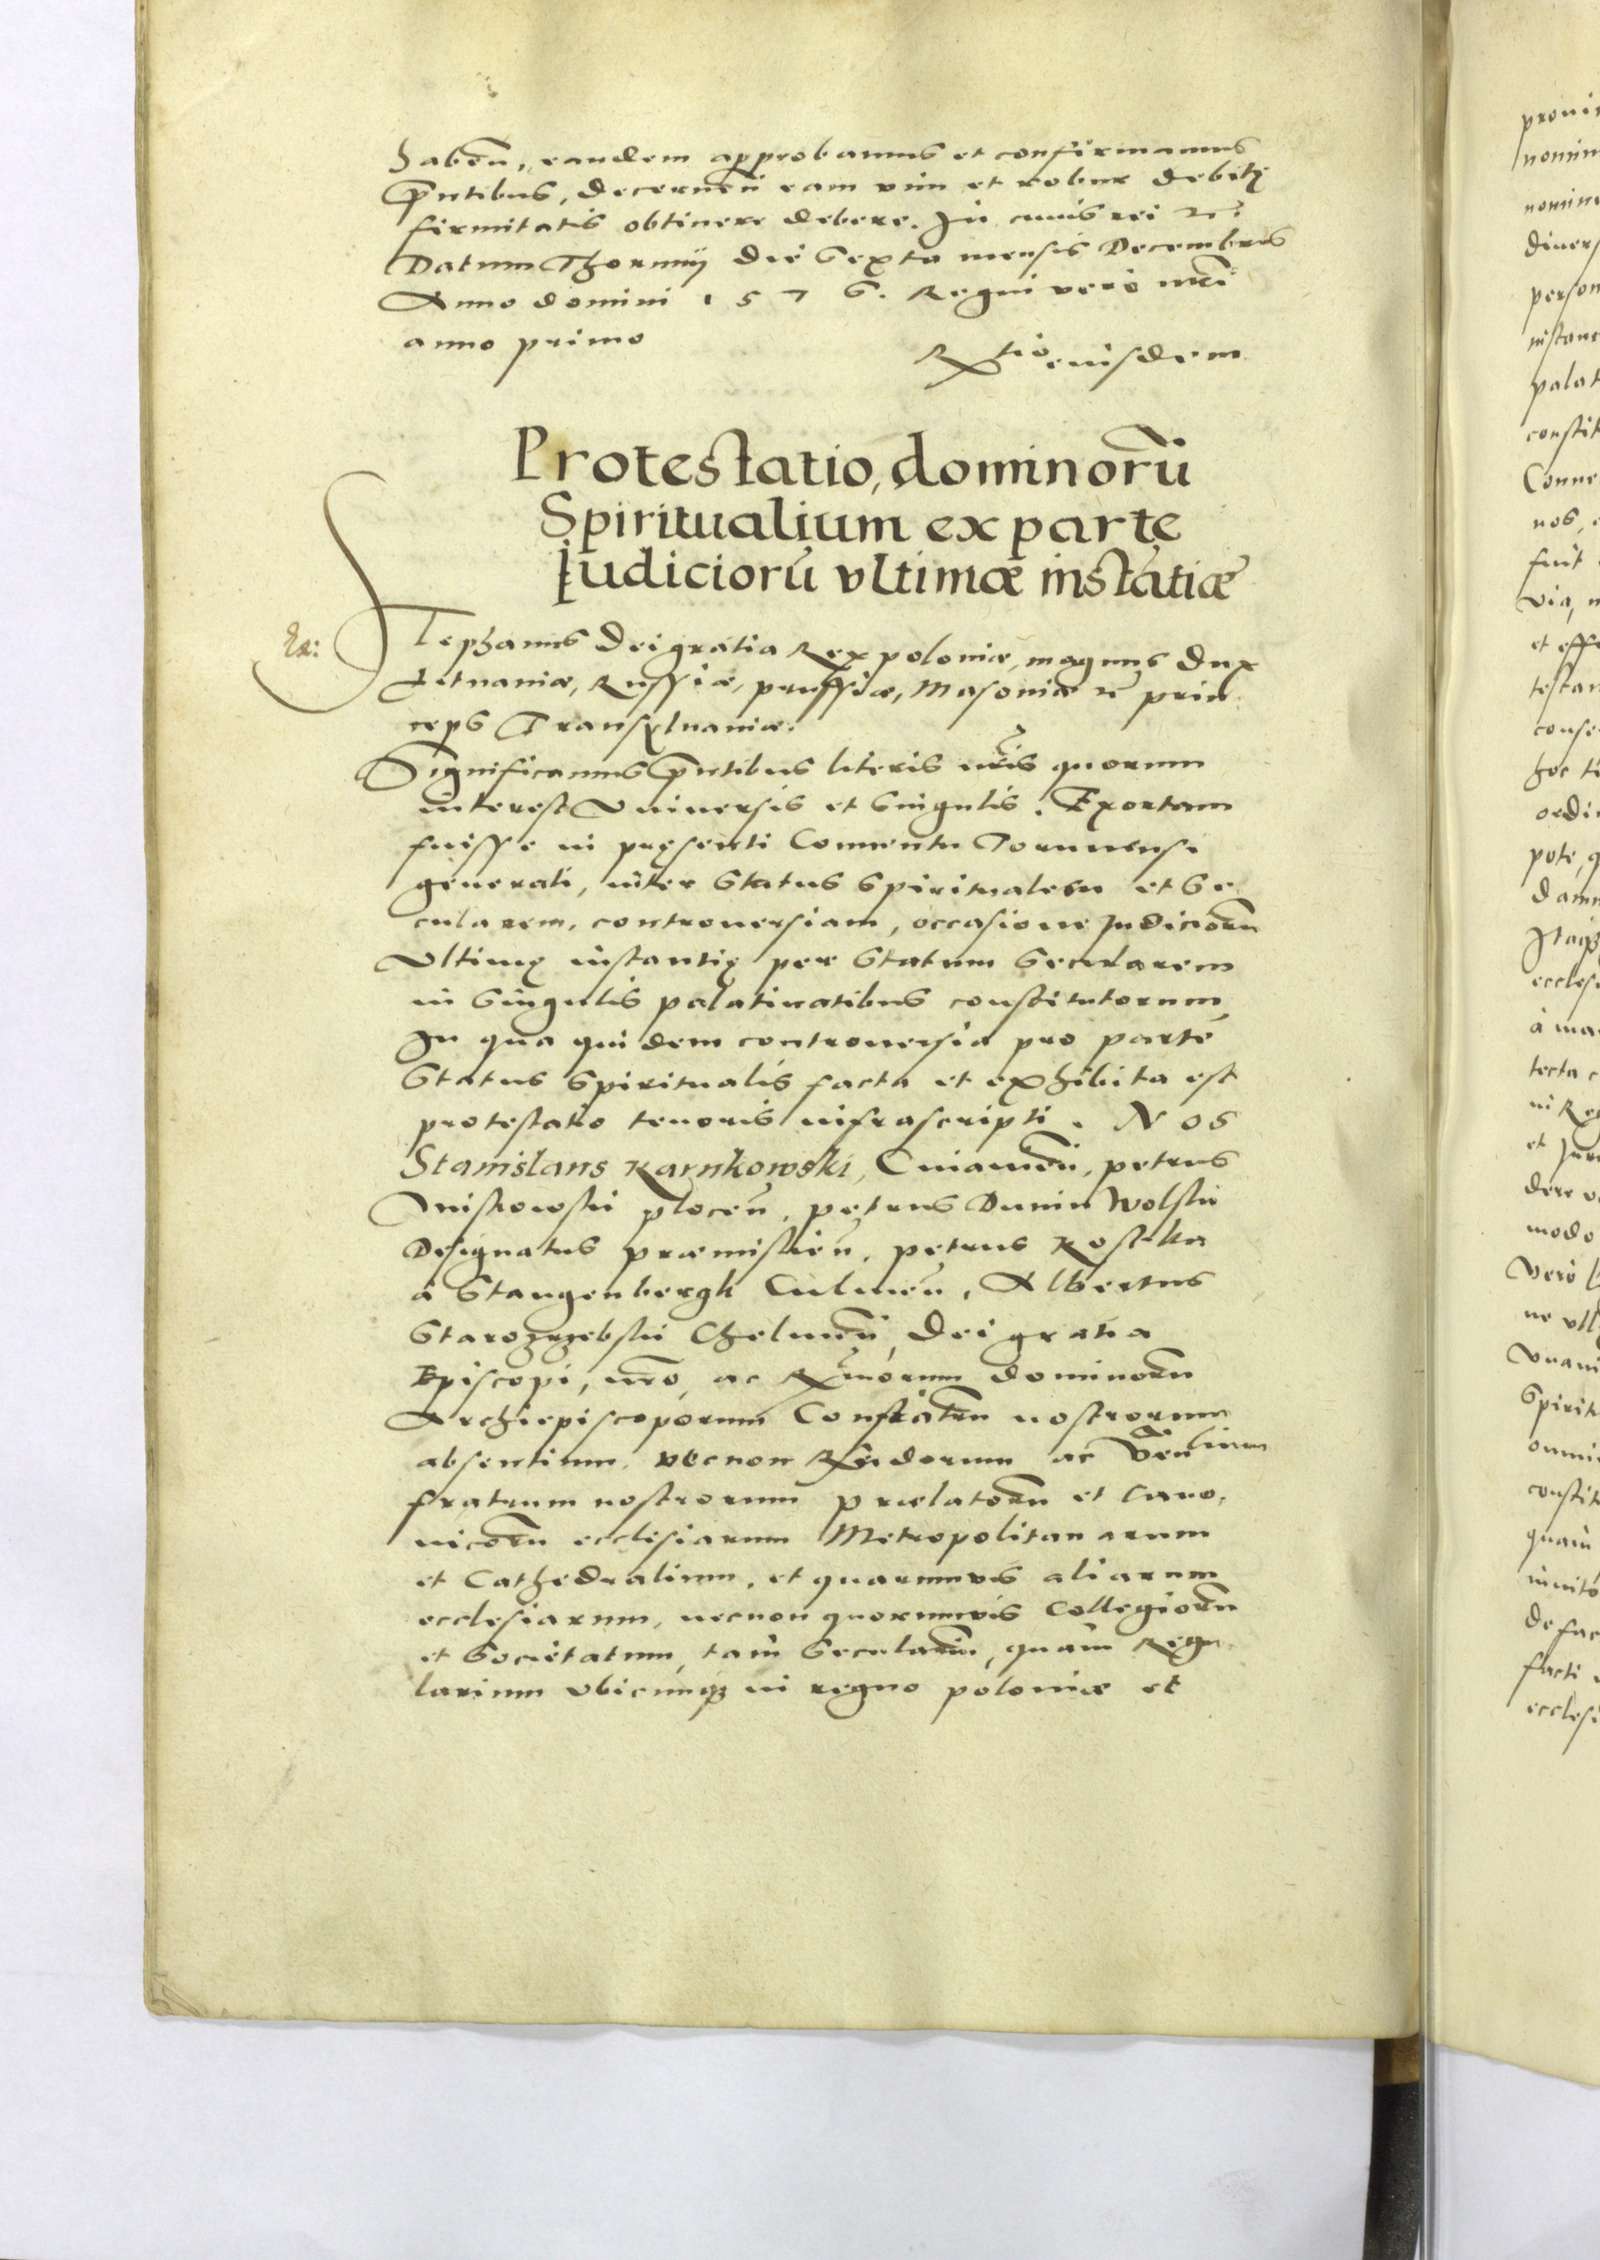 haben, eandem approbamus et confirmamus
pñtibus, decernen eam vim et robur debitę
firmitatis obtinere debere. In cuius rei etc.
Datum Thorunij die Sexta mensis Decembris
Anno domini 1576. Regni vero nri
anno primo
Rtio eiusdem
Protestatio, dominorū
Spiritualium ex parte
Iudiciorū vltimæ instātiæ
Stephanus Dei gratia Rex poloniæ, magnus Dux
Lituaniæ, Russiæ, prussiæ, Masouiæ etc prin
ceps Transyluaniæ.
Significamus pñtibus literis nris quorum
interest Vniuersis et Singulis. Exortam
fuisse in pręsenti Conuentu Torunensi
generali, inter Status Spiritualem et Se
cularem, controuersiam, occasione Judiciorū
Vltimę instantię per Statum Secularem
in Singulis palatinatibus constitutorum
In qua quidem controuersia pro parte
Status Spiritualis facta et exhibita est
protestatio tenoris infrascripti. Nos
Stanislaus Karnkowski, Cuiauień, petrus
Miskowski plocēn, petrus Dunin Wolski
Designatus præmislien, petrus Kostka
á Stangenbergk Culmeñ, Albertus
Starozrzebski Chelmeñ, Dei gratia
Episcopi, nro, ac Rmorum dominorū
Archiepiscoporum Confratrū nostrorum
absentium, necnon Rñdorum ac Venlium
fratrum nostrorum prælatorū et Cano,
nicorū ecclesiarum Metropolitanarum
et Cathedralium, et quarumuis aliarum
ecclesiarum, necnon quorumuis Collegiorū
et Societatum, tam Secularium, quàm Regu
larium vbicunqz in regno poloniæ et